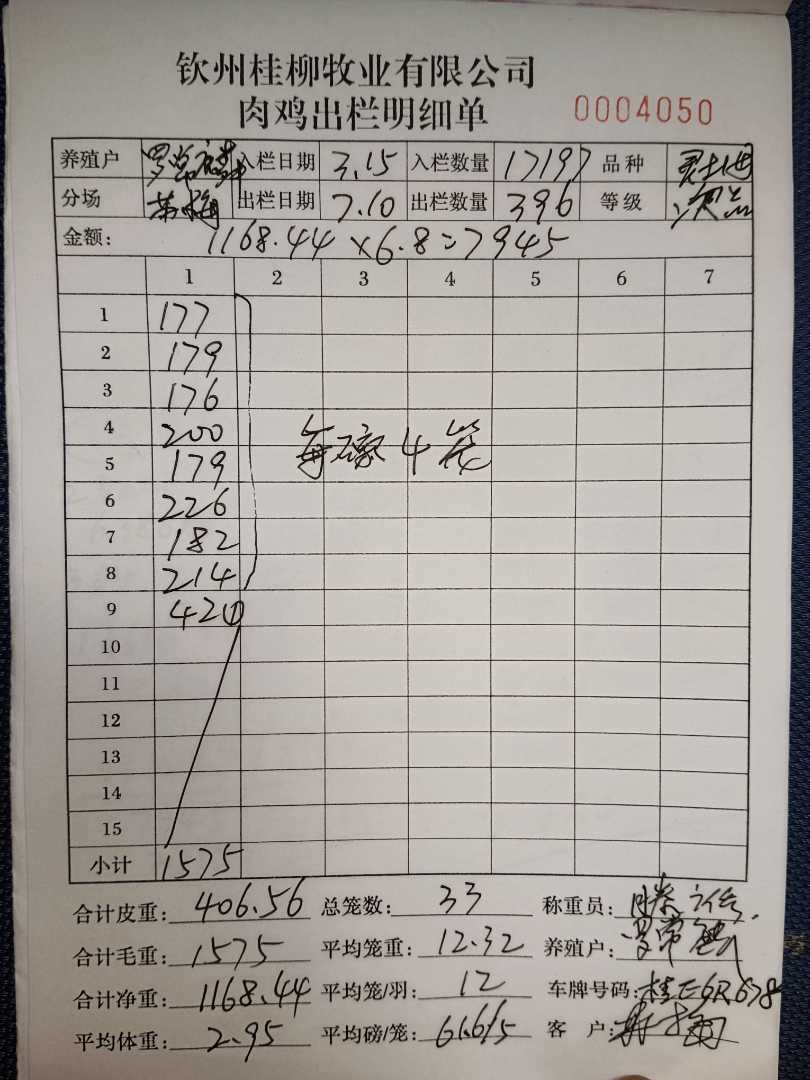 钦州桂柳牧业有限公司
肉鸡出栏明细单 0004050
养殖户 罗常德 入栏日期 3.15 入栏数量 17197 品种
分场 出栏日期 7.10 出栏数量 396 等级 次品
金额: 1168.44×6.8=7945
1 2 3 4 5 6 7
1 177
2 179
3 176
4 200
5 179
6 226
7 182
8 214
每磅4笼
9 42①
10
11
12
13
14
15
小计 1575
合计皮重: 406.56 总笼数: 33 称重员:
合计毛重: 1575 平均笼重: 12.32 养殖户: 罗常德
合计净重: 1168.44 平均笼/羽: 12 车牌号码: 桂E6R678
平均体重: 2.95 平均磅/笼: 客 户: